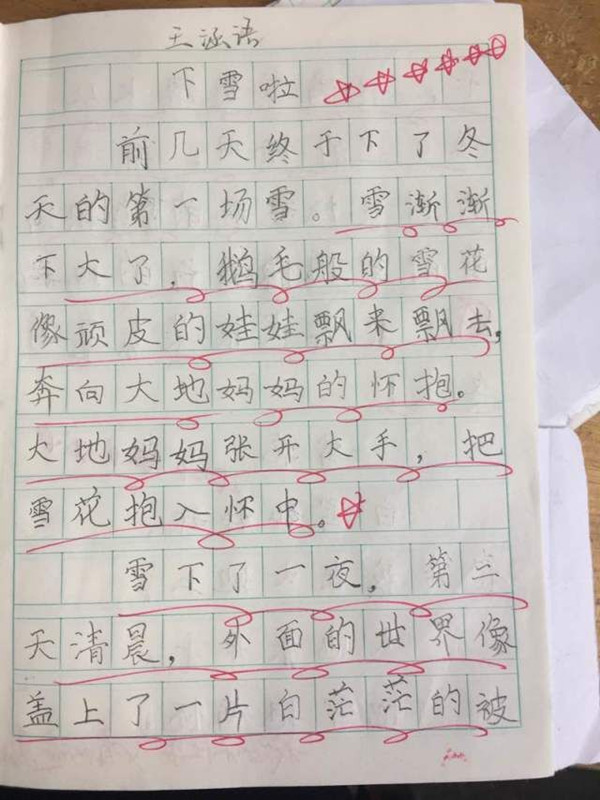 王涵语
下雪啦
前几天终于下了冬
天的第一场雪。雪渐渐
下大了，鹅毛般的雪花
像顽皮的娃娃飘来飘去，
奔向大地妈妈的怀抱。
大地妈妈张开大手，把
雪花抱入怀中。
雪下了一夜，第二
天清晨，外面的世界像
盖上了一片白茫茫的被